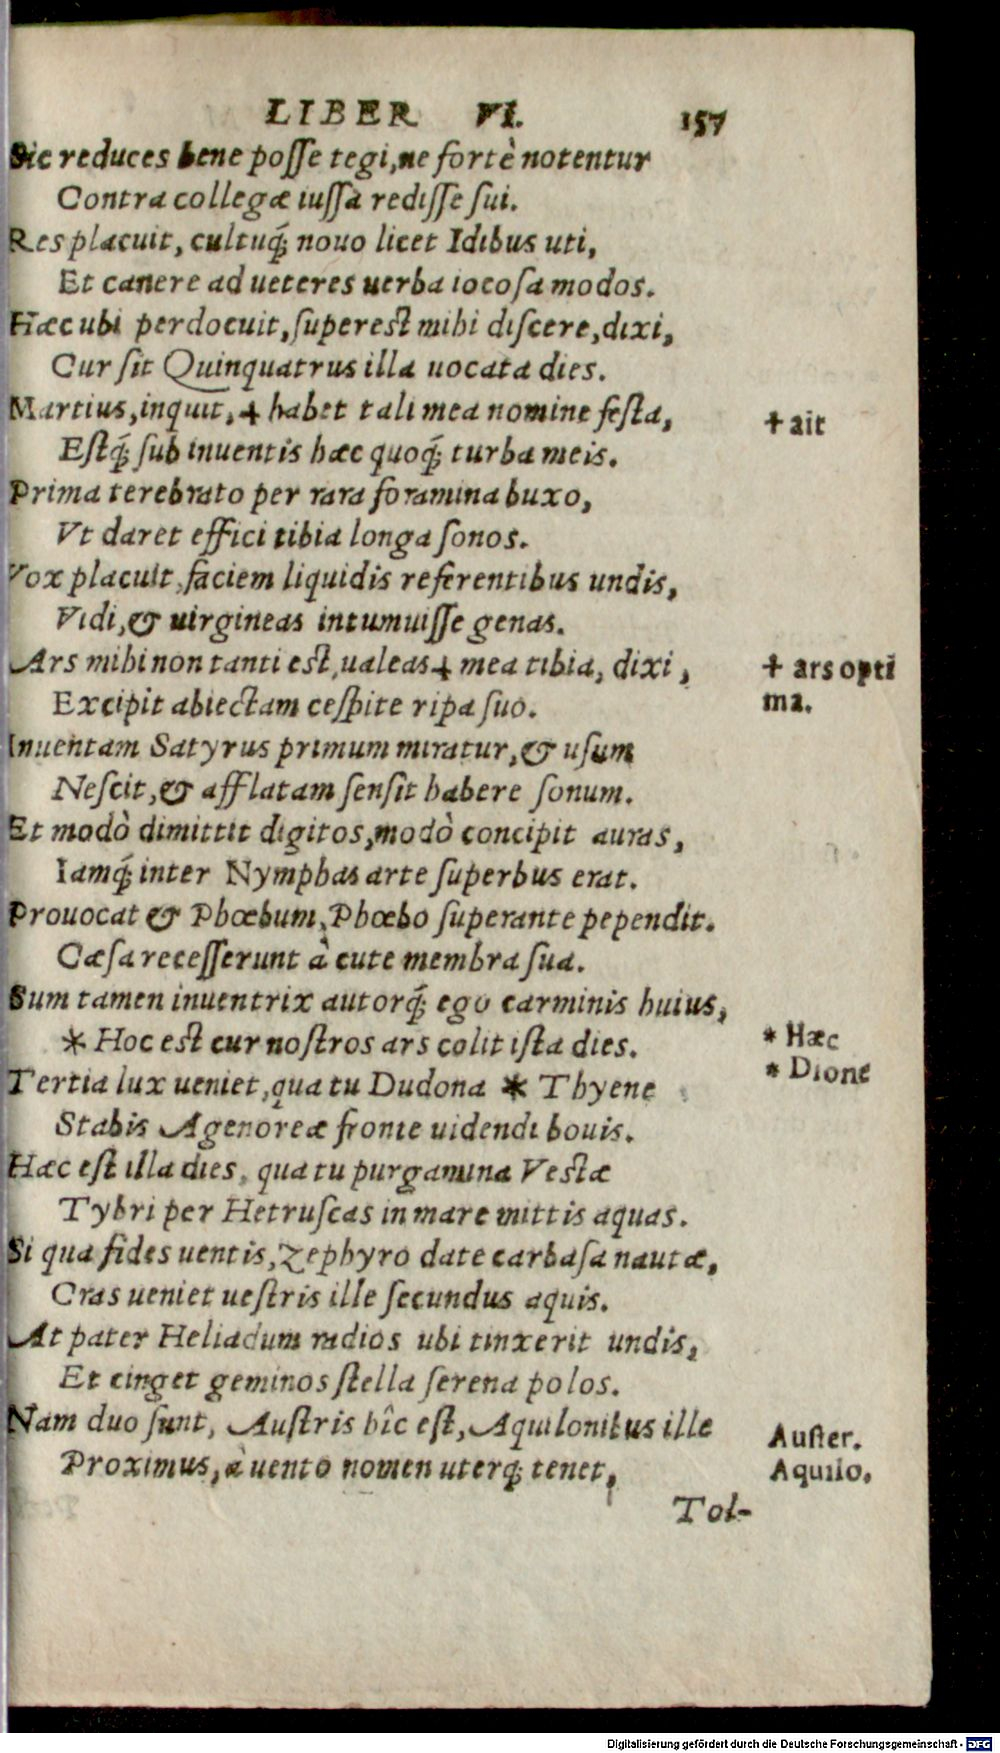 LIBER VI. 157
Sic reduces bene posse tegi, ne fortè notentur
Contra collegæ iussa redisse sui.
Res placuit, cultuq́; nouo licet Idibus uti,
Et canere ad ueteres uerba iocosa modos.
Hæc ubi perdocuit, superest mihi discere, dixi,
Cur sit Quinquatrus illa uocata dies.
Martius, inquit, + habet tali mea nomine festa,
+ ait
Estq́; sub inuentis hæc quoq́; turba meis.
Prima terebrato per rara foramina buxo,
Vt daret effici tibia longa sonos.
Vox placuit, faciem liquidis referentibus undis,
Vidi, & uirgineas intumuisse genas.
Ars mihi non tanti est, ualeas + mea tibia, dixi,
+ ars opti
ma.
Excipit abiectam cespite ripa suo.
Inuentam Satyrus primum miratur, & usum
Nescit, & afflatam sensit habere sonum.
Et modò dimittit digitos, modò concipit auras,
Iamq́; inter Nymphas arte superbus erat.
Prouocat & Phœbum, Phœbo superante pependit.
Cæsa recesserunt à cute membra sua.
Sum tamen inuentrix autorq́; ego carminis huius,
* Hoc est cur nostros ars colit ista dies.
* Hæc
Tertia lux ueniet, qua tu Dudona * Thyene
* Dione
Stabis Agenoreæ fronte uidendi bouis.
Hæc est illa dies, qua tu purgamina Vestæ
Tybri per Hetruscas in mare mittis aquas.
Si qua fides uentis, Zephyro date carbasa nautæ,
Cras ueniet uestris ille secundus aquis.
At pater Heliadum radios ubi tinxerit undis,
Et cinget geminos stella serena polos.
Nam duo sunt, Austris hîc est, Aquilonibus ille
Auster.
Proximus, à uento nomen uterq; tenet,
Aquilo.
Tol-
Digitalisierung gefördert durch die Deutsche Forschungsgemeinschaft - DFG